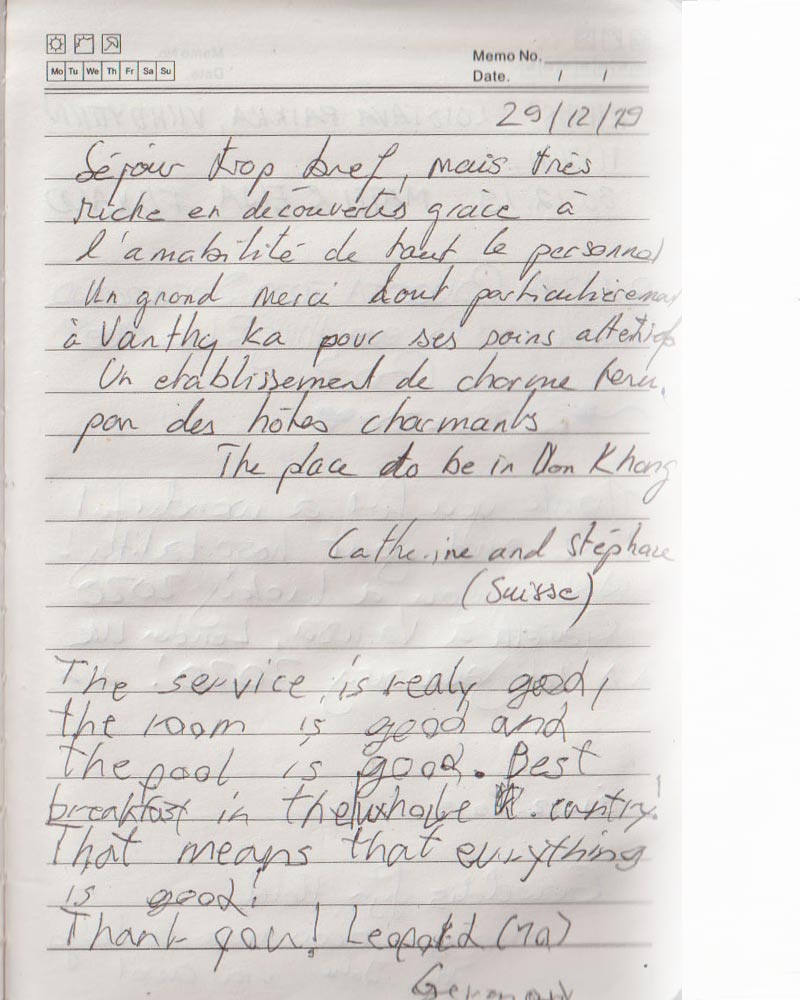 Memo No.
Mo Tu We Th Fr Sa Su
Date. / /
29/12/19
Séjour trop bref, mais très
riche en découvertes grâce à
l'amabilité de tout le personnel
Un grand merci tout particulièrement
à Vanthy Ka pour ses soins attentifs
Un etablissement de charme tenu
par des hôtes charmants
The place to be in Don Khong
Catherine and Stéphane
(Suisse)
The service is realy good,
the room is good and
the pool is good. Best
breakfast in the whole cuntry!
That means that evrything
is good!
Thank you! Leopold
Germany